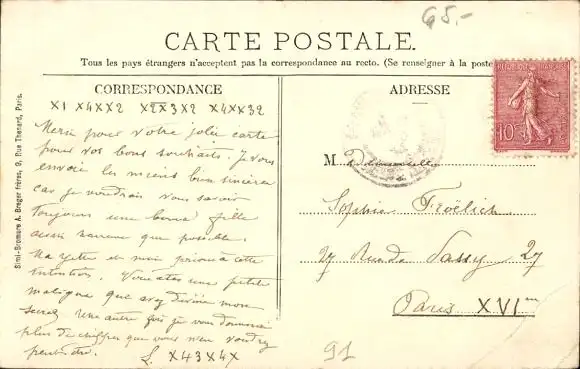 65.-
CARTE POSTALE.
Tous les pays étrangers n'acceptent pas la correspondance au recto. (Se renseigner à la poste
CORRESPONDANCE
ADRESSE
REPUBLIQUE FRANCAISE
10
Simi-Bromure A. Breger frères, 9, Rue Thenard, Paris.
X1 X4XX2 X2X3X2 X4XX32
Merci pour votre jolie carte
pour vos bons souhaits. Je vous
envoie les miens bien sincères
car je voudrais vous savoir
toujours une bonne fille
aussi heureuse que possible.
à cette
intention. Vous êtes une petite
maligne que avez deviné mon
secret Une autre fois je vous donnerai
plus de chiffres que vous n'en voudrez
peut-être. L. X43X4X
Mademoiselle
Sophie Froëlich
27 Rue de Passy 27
Paris XVIme
91